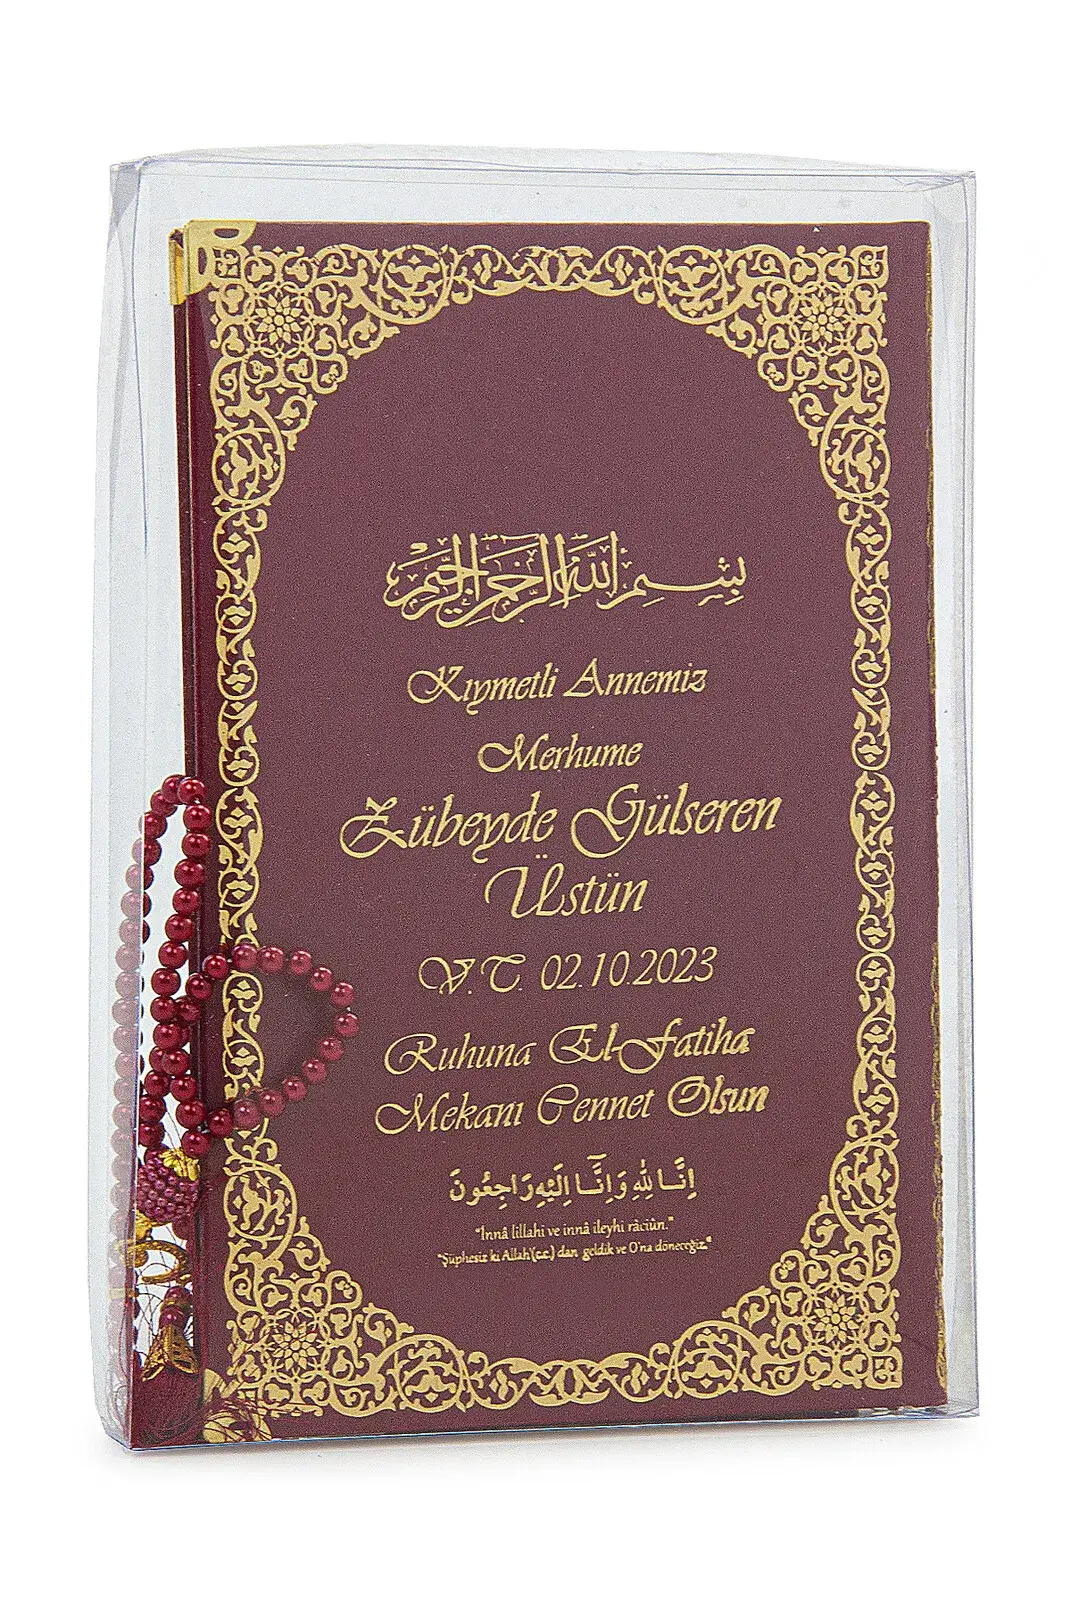 بسم الله الرحمن الرحيم
Kıymetli Annemiz
Merhume
Zübeyde Gülseren
Üstün
V.T. 02.10.2023
Ruhuna El-Fatiha
Mekanı Cennet Olsun
اِنَّا لِلّٰهِ وَاِنَّٓا اِلَيْهِ رَاجِعُونَ
"İnnâ lillahi ve innâ ileyhi râciûn."
"Şuphesiz ki Allah'(c.c.) dan geldik ve O'na döneceğiz."